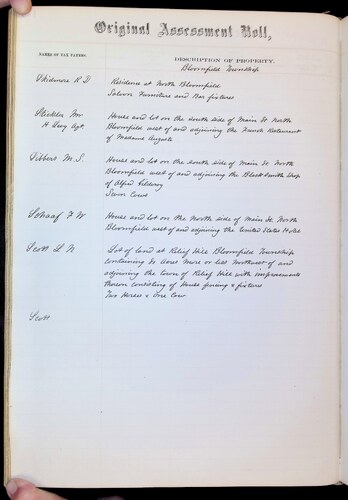 Original Assessment Roll,
NAMES OF TAX PAYERS.
DESCRIPTION OF PROPERTY.
Bloomfield Township
Skidmore R D
Residence at North Bloomfield
Saloon Furniture and Bar fixtures
Stickles Mr
H Levy Agt
House and lot on the south side of Main St North
Bloomfield west of and adjoining the French Restaurant
of Madame Auguste
Sibbert M. S.
House and lot on the south side of Main St North
Bloomfield west of and adjoining the Blacksmith Shop
of Alfred
Seven Cows
Schaaf F W
House and lot on the North side of Main St North
Bloomfield west of and adjoining the United States Hotel
Scott L W
Lot of land at Relief Hill Bloomfield Township
containing Acres more or less Northwest of and
adjoining the town of Relief Hill with improvements
thereon consisting of House & fixtures
Two Horses & One Cow
Scott